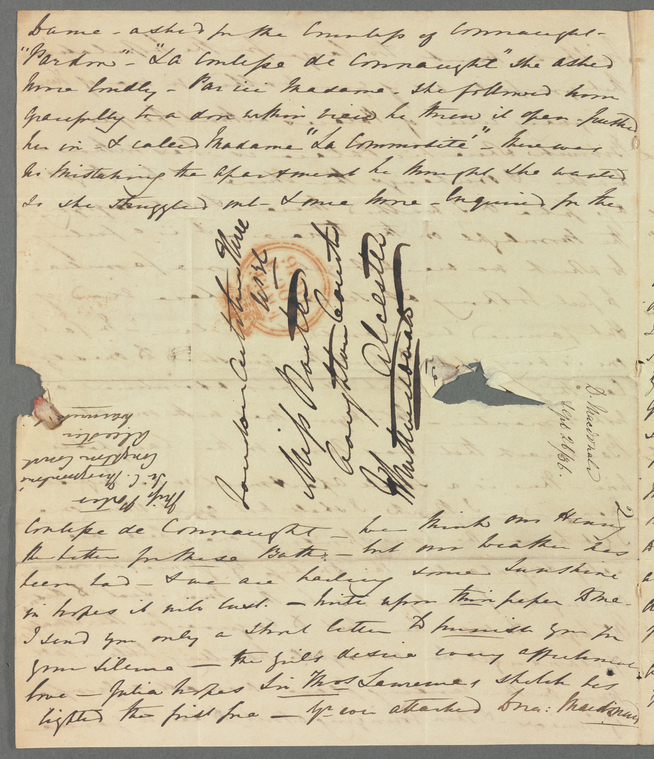 Dame - asked for the Countess of Connaught -
"Pardon" - "La Contesse de Connaught" she asked
more loudly - Par ici Madame - she followed him
gracefully to a door within view he threw it open -
her in - & called Madame "La Commodité" - there was
no mistaking the apartment he thought she wanted
so she struggled out - & once more - Enquired for the
London Octr three
1836
Miss Porter
Coughton Court
Alcester
Warwickshire
D. Macdonald
Sept 29/36.
2
Miss Porter
Sr C. Throgmorton
Coughton Court
Alcester
Contesse de Connaught - we think our Henry
the better for these Baths - but our weather has
been bad - & we are having some Sunshine
in hopes it will last. - write upon thin paper to me.
I send you only a short letter to punish you for
your silence - the girls desire every affectionate
love - Julia hopes Sir Thos Lawrence's sketch has
lighted the first fire - yr ever attached